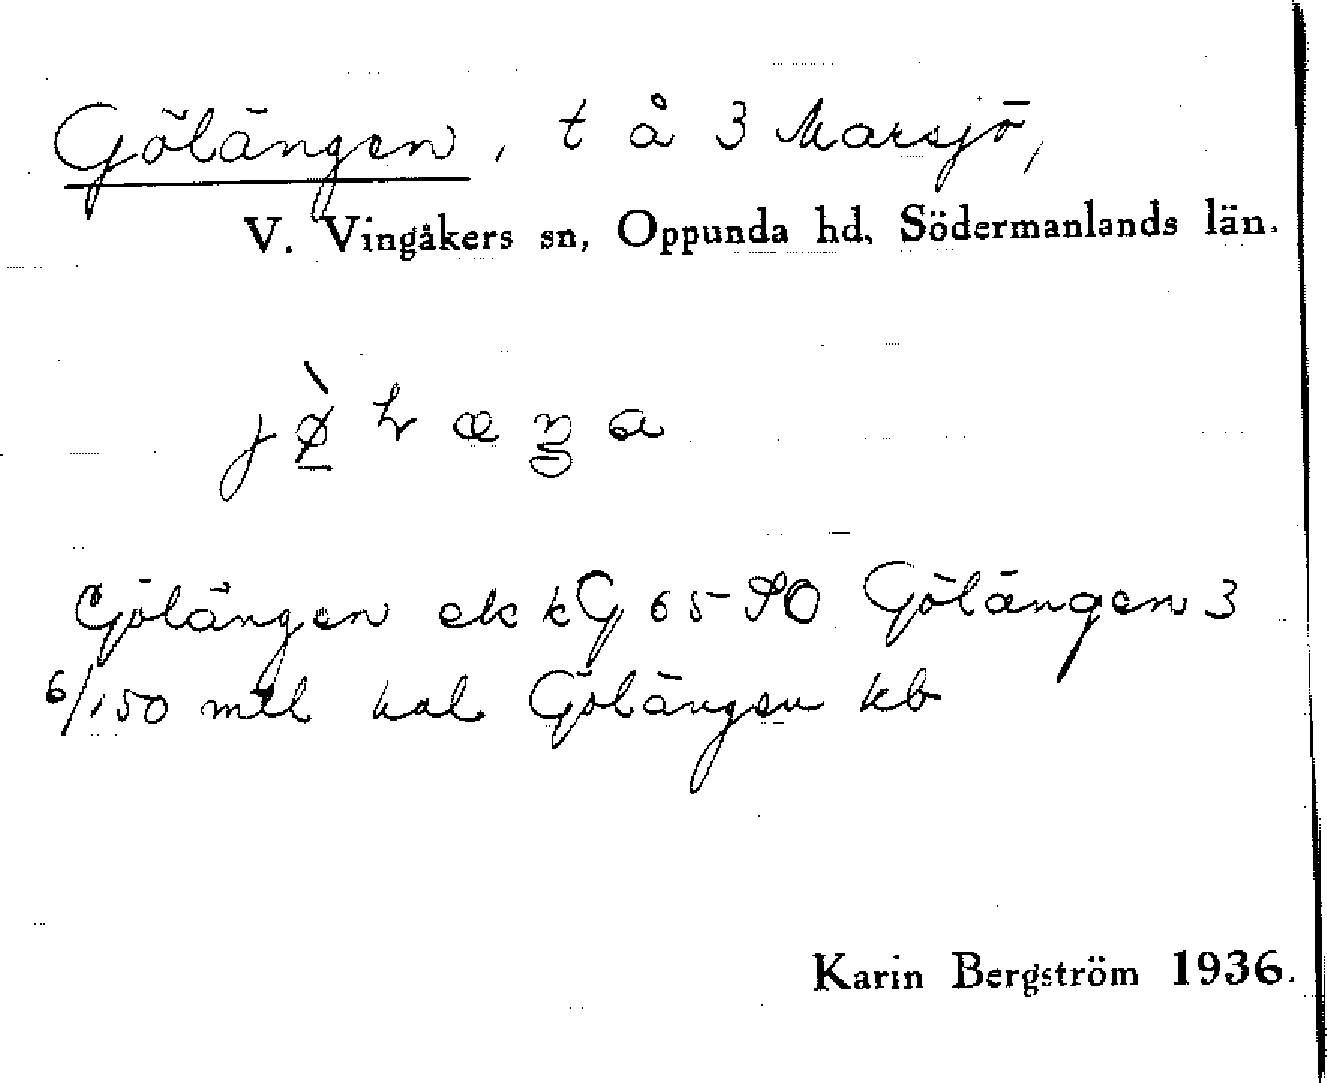 Gölängen, t å 3 Marsjö,
V. Vingåkers sn, Oppunda hd, Södermanlands län.
Gölängen ek kG 65 SO Gölängen 3
6/150 mtl hal Gölängen kb
Karin Bergström 1936.